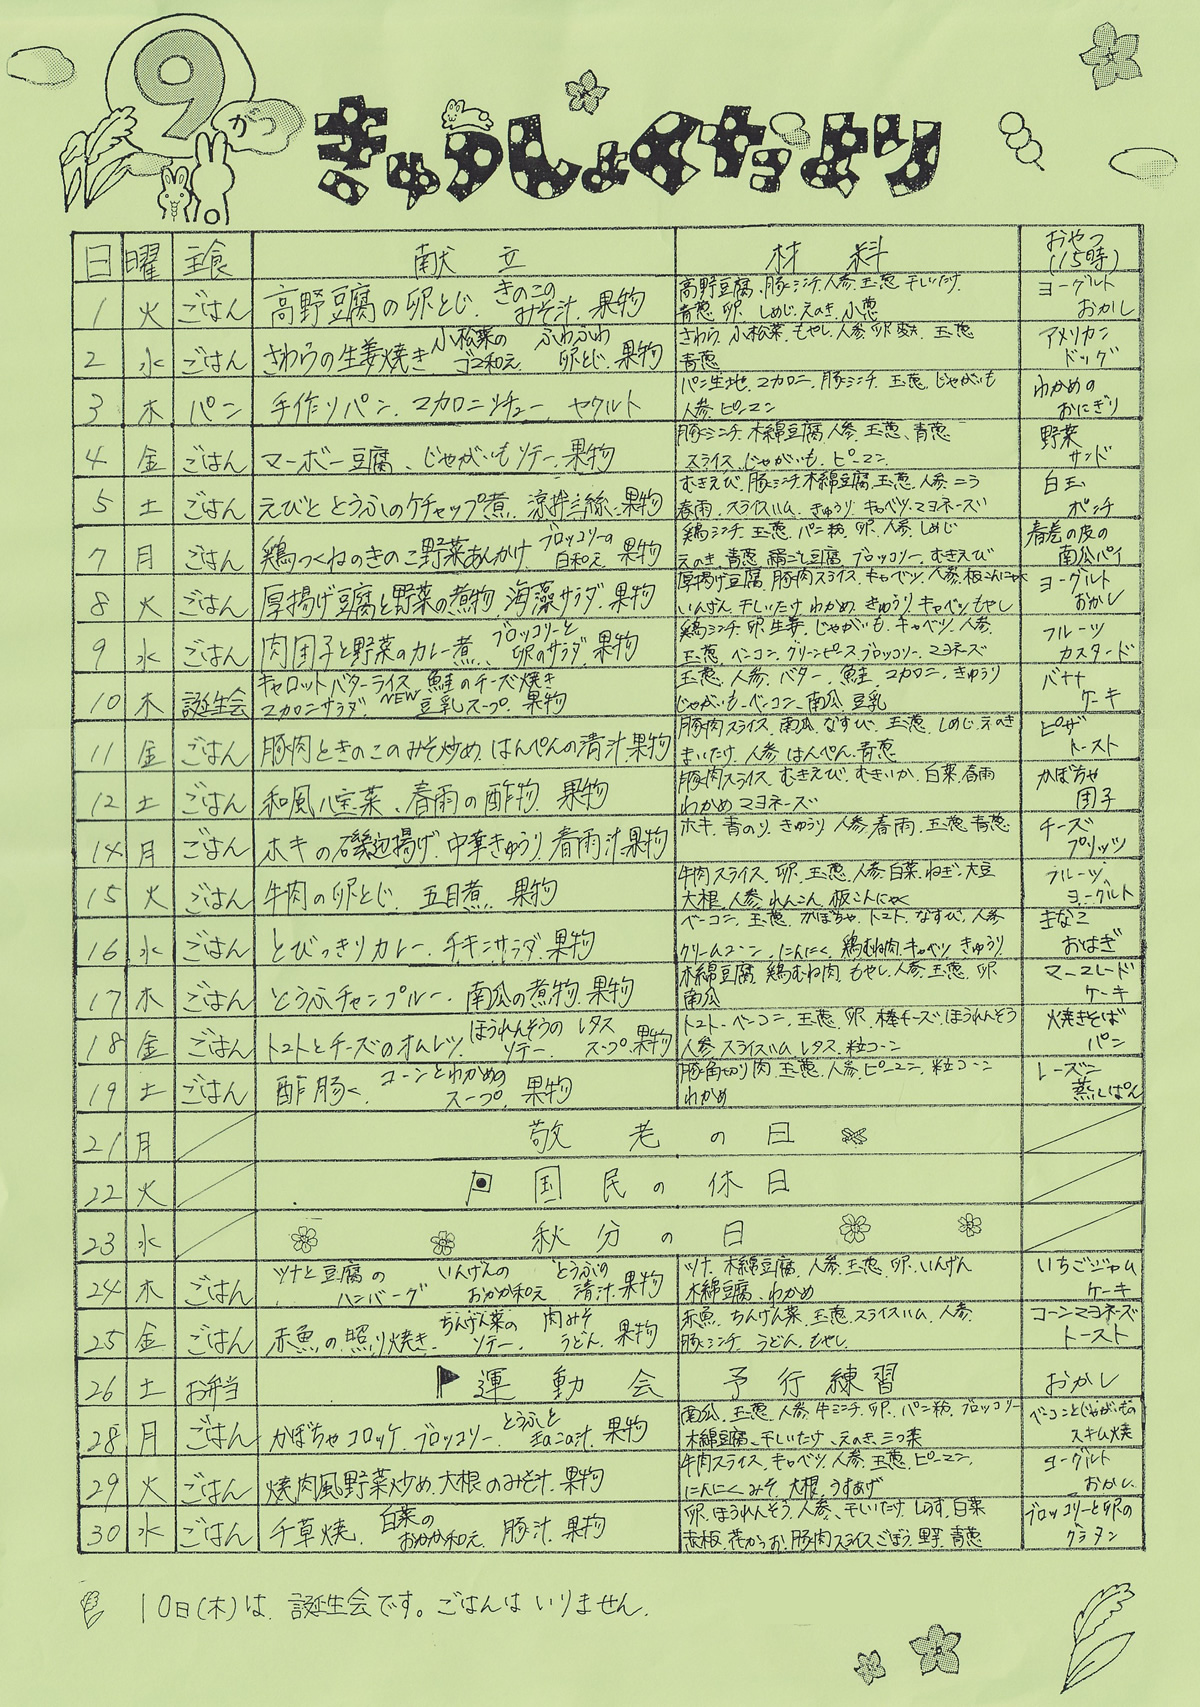 9がつ
きゅうしょくだより
日 曜 主食 献立 材料 おやつ(15時)
1 火 ごはん 高野豆腐の卵とじ、きのこのみそ汁、果物 高野豆腐、豚ミンチ、人参、玉葱、干しいたけ、 ヨーグルト
青葱、卵、しめじ、えのき、小葱 おかし
2 水 ごはん さわらの生姜焼き 小松菜のゴマ和え ふわふわ卵とじ、果物 さわら、小松菜、もやし、人参、卵、玉葱 アメリカン
青葱 ドッグ
3 木 パン 手作りパン、マカロニシチュー、ヤクルト パン生地、マカロニ、豚ミンチ、玉葱、じゃがいも わかめの
人参、ピーマン おにぎり
4 金 ごはん マーボー豆腐、じゃがいもソテー、果物 豚ミンチ、木綿豆腐、人参、玉葱、青葱 野菜
スライス、じゃがいも、ピーマン サンド
5 土 ごはん えびととうふのケチャップ煮、涼拌三絲、果物 むきえび、豚ミンチ、木綿豆腐、玉葱、人参、ニラ 白玉
春雨、スライスハム、きゅうり、キャベツ、マヨネーズ ポンチ
7 月 ごはん 鶏つくねのきのこ野菜あんかけ、ブロッコリーの白和え、果物 鶏ミンチ、玉葱、パン粉、卵、人参、しめじ 春巻の皮の
えのき、青葱、絹ごし豆腐、ブロッコリー、むきえび 南瓜パイ
8 火 ごはん 厚揚げ豆腐と野菜の煮物、海藻サラダ、果物 厚揚げ豆腐、豚肉スライス、キャベツ、人参、板こんにゃく ヨーグルト
いんげん、干しいたけ、わかめ、きゅうり、キャベツ、もやし おかし
9 水 ごはん 肉団子と野菜のカレー煮、ブロッコリーと卵のサラダ、果物 鶏ミンチ、卵、生姜、じゃがいも、キャベツ、人参、 フルーツ
玉葱、ベーコン、グリンピース、ブロッコリー、マヨネーズ カスタード
10 木 誕生会 キャロットバターライス、鮭のチーズ焼き 玉葱、人参、バター、鮭、マカロニ、きゅうり バナナ
マカロニサラダ、NEW 豆乳スープ、果物 じゃがいも、ベーコン、南瓜、豆乳 ケーキ
11 金 ごはん 豚肉ときのこのみそ炒め、はんぺんの清汁、果物 豚肉スライス、南瓜、なすび、玉葱、しめじ、えのき ピザ
まいたけ、人参、はんぺん、青葱 トースト
12 土 ごはん 和風八宝菜、春雨の酢物、果物 豚肉スライス、むきえび、むきいか、白菜、春雨 かぼちゃ
わかめ、マヨネーズ 団子
14 月 ごはん ホキの磯辺揚げ、中華きゅうり、春雨汁、果物 ホキ、青のり、きゅうり、人参、春雨、玉葱、青葱 チーズ
プリッツ
15 火 ごはん 牛肉の卵とじ、五目煮、果物 牛肉スライス、卵、玉葱、人参、白菜、ねぎ、大豆 フルーツ
大根、人参、れんこん、板こんにゃく ヨーグルト
16 水 ごはん とびっきりカレー、チキンサラダ、果物 ベーコン、玉葱、かぼちゃ、トマト、なすび、人参 きなこ
クリームコーン、にんにく、鶏むね肉、キャベツ、きゅうり おはぎ
17 木 ごはん とうふチャンプルー、南瓜の煮物、果物 木綿豆腐、鶏むね肉、もやし、人参、玉葱、卵 マーマレード
南瓜 ケーキ
18 金 ごはん トマトとチーズのオムレツ、ほうれんそうのソテー、レタススープ、果物 トマト、ベーコン、玉葱、卵、棒チーズ、ほうれんそう 焼きそば
人参、スライスハム、レタス、粒コーン パン
19 土 ごはん 酢豚、コーンとわかめのスープ、果物 豚角切り肉、玉葱、人参、ピーマン、粒コーン レーズン
わかめ 蒸しぱん
21 月 敬老の日
22 火 国民の休日
23 水 秋分の日
24 木 ごはん ツナと豆腐のハンバーグ いんげんのおかか和え とうふの清汁、果物 ツナ、木綿豆腐、人参、玉葱、卵、いんげん いちごジャム
木綿豆腐、わかめ ケーキ
25 金 ごはん 赤魚の照り焼き、ちんげん菜のソテー、肉みそうどん、果物 赤魚、ちんげん菜、玉葱、スライスハム、人参、 コーンマヨネーズ
豚ミンチ、うどん、もやし トースト
26 土 お弁当 運動会 予行練習 おかし
28 月 ごはん かぼちゃコロッケ、ブロッコリー、とうふと 汁、果物 南瓜、玉葱、人参、牛ミンチ、卵、パン粉、ブロッコリー ベーコンとじゃがいもの
木綿豆腐、干しいたけ、えのき、三つ葉 スキム焼
29 火 ごはん 焼肉風野菜炒め、大根のみそ汁、果物 牛肉スライス、キャベツ、人参、玉葱、ピーマン、 ヨーグルト
にんにく、みそ、大根、うすあげ おかし
30 水 ごはん 千草焼、白菜のおかか和え、豚汁、果物 卵、ほうれんそう、人参、干しいたけ、しらす、白菜 ブロッコリーと卵の
赤板、花かつお、豚肉スライス、ごぼう、里芋、青葱 グラタン
10日(木)は、誕生会です。ごはんはいりません。